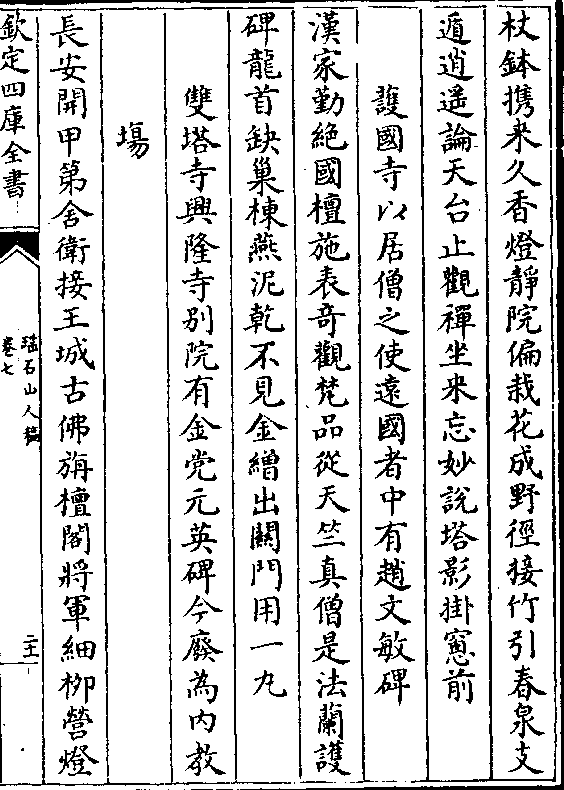 杖鉢携来久香燈靜院偏栽花成野徑接竹引春泉支
遁逍遥論天台止觀禪坐来忘妙說塔影掛窻前
護國寺以居僧之使遠國者中有趙文敏碑
漢家勤絶國檀施表竒觀梵品從天竺真僧是法蘭護
碑龍首缺巢棟燕泥乾不見金繒出關門用一丸
雙塔寺興隆寺别院有金党元英碑今廢為内教
塲
長安開甲第舍衛接王城古佛旃檀閣將軍細栁營燈
欽定四庫全書
瑶石山人稿
卷七
二十一